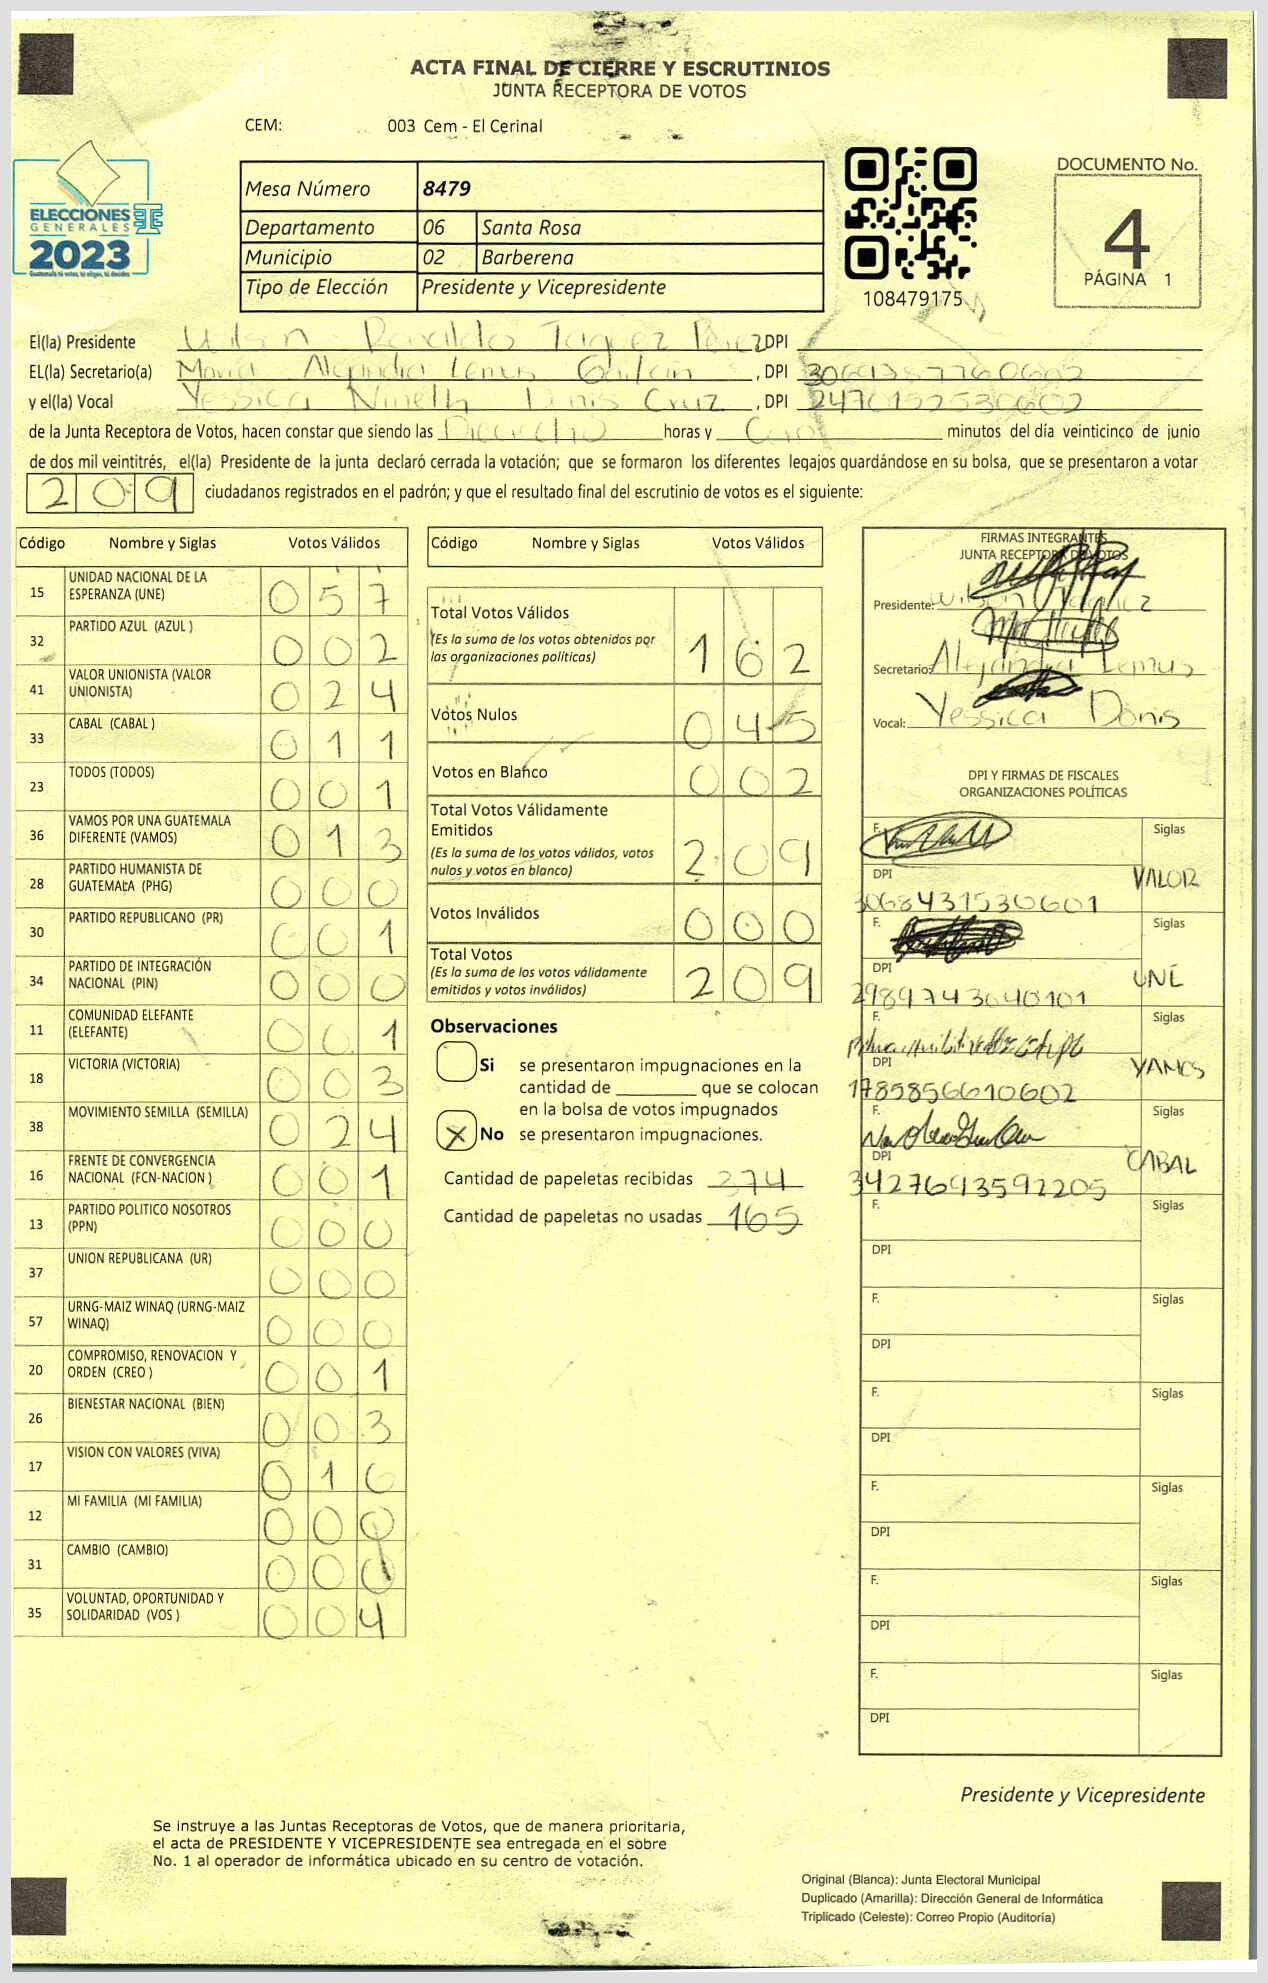 ACTA FINAL DE CIERRE Y ESCRUTINIOS
JUNTA RECEPTORA DE VOTOS
CEM: 003 Cem - El Cerinal
ELECCIONES
GENERALES
2023
Mesa Número 8479
Departamento 06 Santa Rosa
Municipio 02 Barberena
Tipo de Elección Presidente y Vicepresidente
108479175
DOCUMENTO No.
4
PÁGINA 1
El(la) Presidente Wilson Ronaldo Taquez Perez DPI
EL(la) Secretario(a) Maria Alejandra Lemus Gaitan , DPI
y el(la) Vocal Yessica Nineth Donis Cruz , DPI 2470192530602
de la Junta Receptora de Votos, hacen constar que siendo las Dieciocho horas y Cero minutos del día veinticinco de junio
de dos mil veintitrés, el(la) Presidente de la junta declaró cerrada la votación; que se formaron los diferentes legajos guardándose en su bolsa, que se presentaron a votar
209 ciudadanos registrados en el padrón; y que el resultado final del escrutinio de votos es el siguiente:
Código Nombre y Siglas Votos Válidos
15 UNIDAD NACIONAL DE LA ESPERANZA (UNE) 057
32 PARTIDO AZUL (AZUL ) 002
41 VALOR UNIONISTA (VALOR UNIONISTA) 024
33 CABAL (CABAL ) 011
23 TODOS (TODOS) 001
36 VAMOS POR UNA GUATEMALA DIFERENTE (VAMOS) 013
28 PARTIDO HUMANISTA DE GUATEMALA (PHG) 000
30 PARTIDO REPUBLICANO (PR) 001
34 PARTIDO DE INTEGRACIÓN NACIONAL (PIN) 000
11 COMUNIDAD ELEFANTE (ELEFANTE) 001
18 VICTORIA (VICTORIA) 003
38 MOVIMIENTO SEMILLA (SEMILLA) 024
16 FRENTE DE CONVERGENCIA NACIONAL (FCN-NACION ) 001
13 PARTIDO POLITICO NOSOTROS (PPN) 000
37 UNION REPUBLICANA (UR) 000
57 URNG-MAIZ WINAQ (URNG-MAIZ WINAQ) 000
20 COMPROMISO, RENOVACION Y ORDEN (CREO ) 001
26 BIENESTAR NACIONAL (BIEN) 003
17 VISION CON VALORES (VIVA) 016
12 MI FAMILIA (MI FAMILIA) 000
31 CAMBIO (CAMBIO) 000
35 VOLUNTAD, OPORTUNIDAD Y SOLIDARIDAD (VOS ) 004
Código Nombre y Siglas Votos Válidos
Total Votos Válidos 162
(Es la suma de los votos obtenidos por
las organizaciones políticas)
Votos Nulos 045
Votos en Blanco 002
Total Votos Válidamente
Emitidos 209
(Es la suma de los votos válidos, votos
nulos y votos en blanco)
Votos Inválidos 000
Total Votos 209
(Es la suma de los votos válidamente
emitidos y votos inválidos)
Observaciones
Si se presentaron impugnaciones en la
cantidad de ________ que se colocan
en la bolsa de votos impugnados
X No se presentaron impugnaciones.
Cantidad de papeletas recibidas 374
Cantidad de papeletas no usadas 165
FIRMAS INTEGRANTES
JUNTA RECEPTORA DE VOTOS
Presidente: Wilson Taquez
Secretario: Alejandra Lemus
Vocal: Yessica Donis
DPI Y FIRMAS DE FISCALES
ORGANIZACIONES POLÍTICAS
F. Siglas
DPI 3068431530601 VALOR
F. Siglas
DPI 2989743040101 UNE
F. Siglas
DPI 1785856610602 VAMOS
F. Siglas
DPI 3427693592205 CABAL
F. Siglas
DPI
F. Siglas
DPI
F. Siglas
DPI
F. Siglas
DPI
F. Siglas
DPI
F. Siglas
DPI
Presidente y Vicepresidente
Se instruye a las Juntas Receptoras de Votos, que de manera prioritaria,
el acta de PRESIDENTE Y VICEPRESIDENTE sea entregada en el sobre
No. 1 al operador de informática ubicado en su centro de votación.
Original (Blanca): Junta Electoral Municipal
Duplicado (Amarilla): Dirección General de Informática
Triplicado (Celeste): Correo Propio (Auditoría)